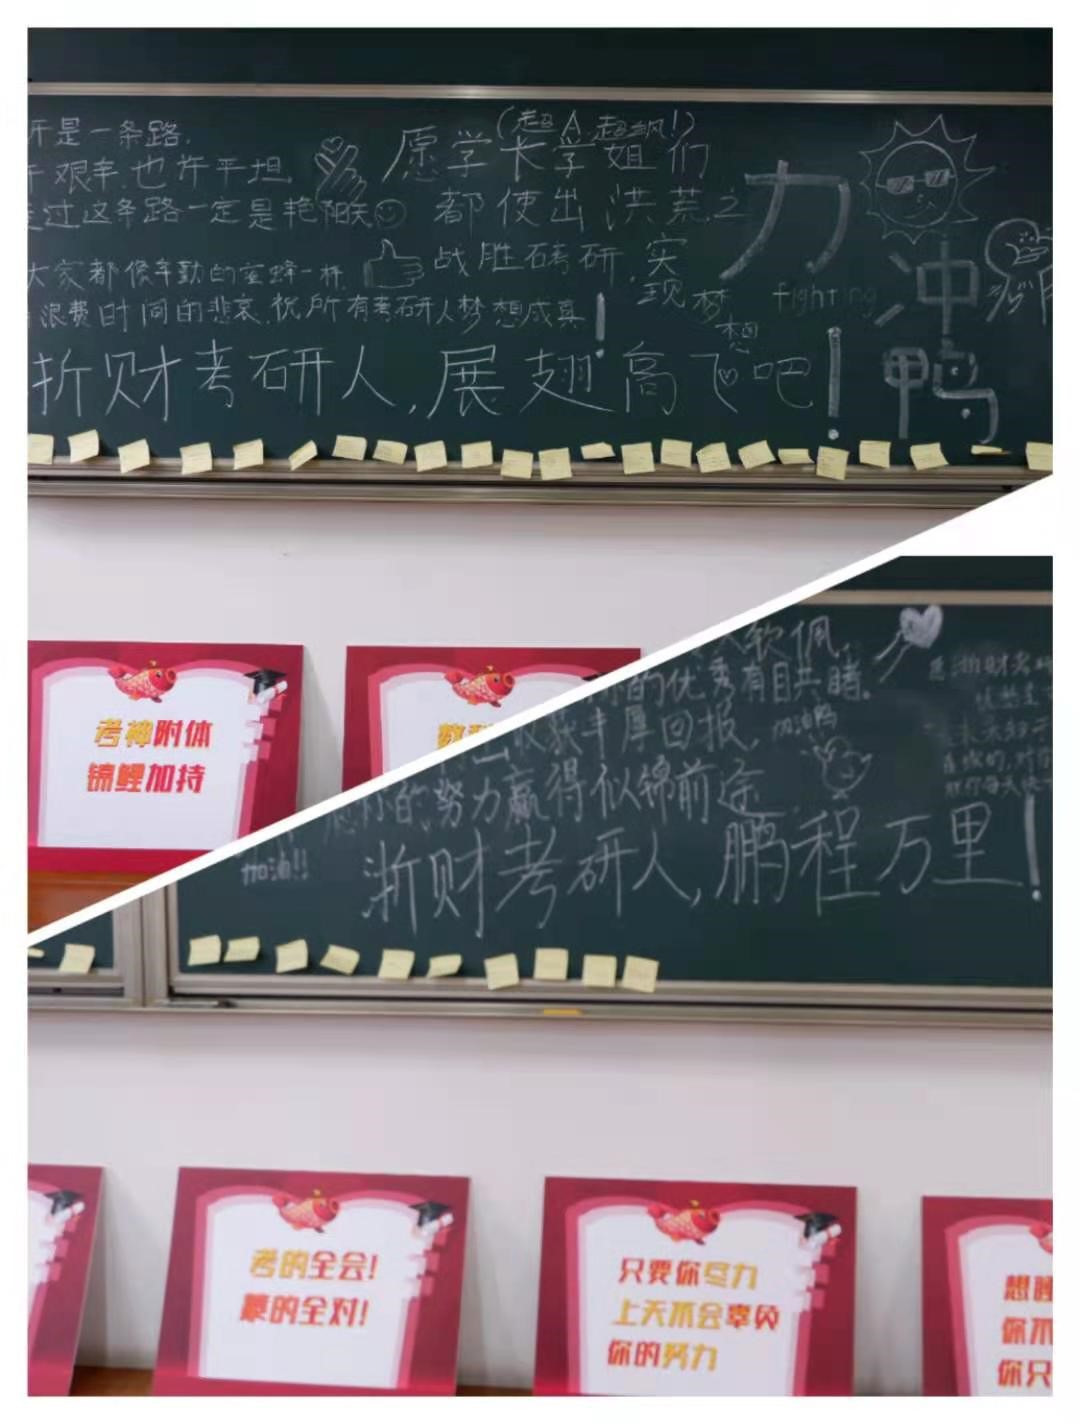 研是一条路,
许艰辛,也许平坦,
走过这条路一定是艳阳天
大家都像辛勤的蜜蜂一样
浪费时间的悲哀.祝所有考研人梦想成真!
(超A 超飒!)
愿学长学姐们
都使出洪荒之力
战胜考研,实现梦想
fighting
冲鸭
浙财考研人,展翅高飞吧!
考神附体
锦鲤加持
人钦佩,
你的优秀有目共睹.
收获丰厚回报,
加油鸭
你的努力赢得似锦前途
加油!!
浙财考研人,鹏程万里!
考的全会!
蒙的全对!
只要你尽力
上天不会辜负
你的努力
想
你不
你只